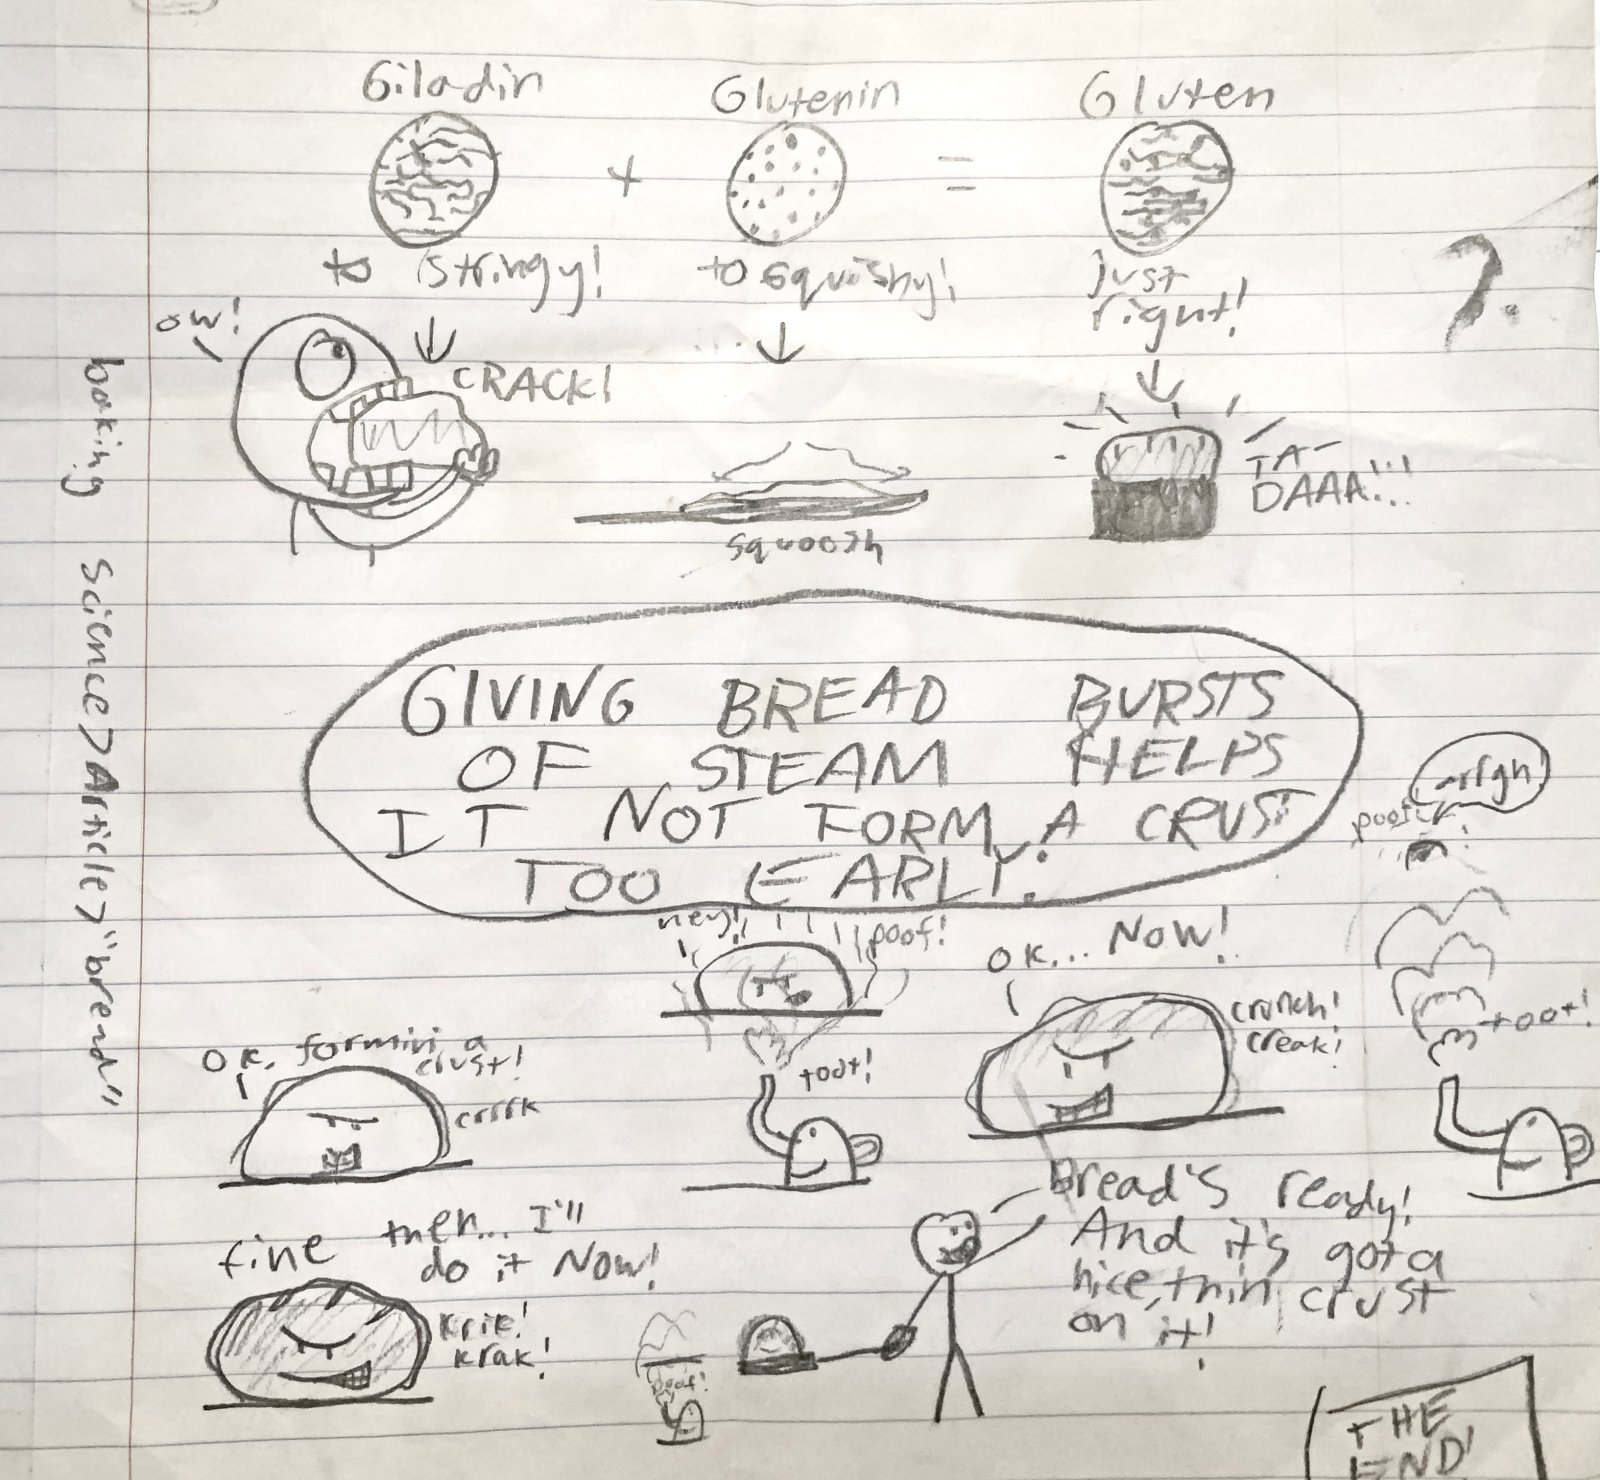 Giladin
Glutenin
Gluten
+
=
to stringy!
to squishy!
just
right!
?.
ow!
CRACK!
squoosh
TA-
DAAA!!!
baking science > Article > "bread"
GIVING BREAD BURSTS
OF STEAM HELPS
IT NOT FORM A CRUST
TOO EARLY!
OK, formin a
crust!
crrrk
hey!
poof!
toot!
OK... NOW!
crunch!
creak!
arrgh!
poof!
toot!
fine then... I'll
do it NOW!
krik!
krak!
poof!
Bread's ready!
And it's got a
nice, thin crust
on it!
THE
END!